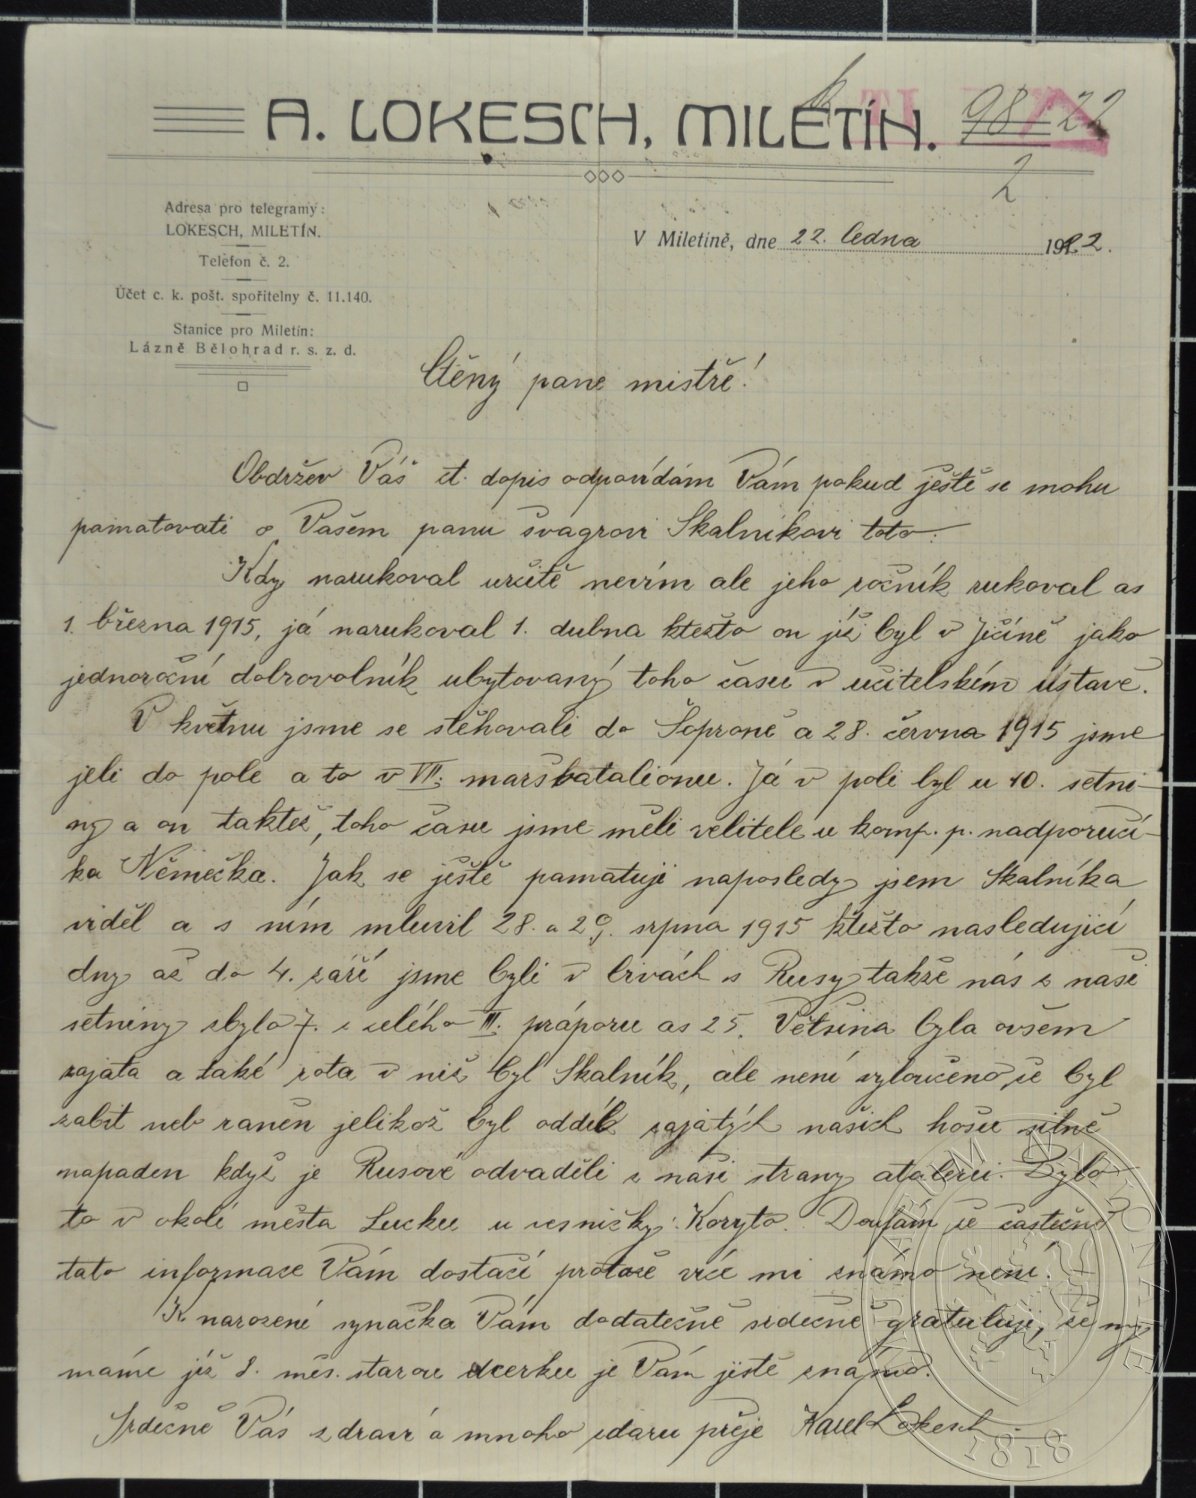 A. LOKESCH, MILETÍN.
98/22
2
Adresa pro telegramy:
LOKESCH, MILETÍN.
Telefon č. 2.
Účet c. k. pošt. spořitelny č. 11.140.
Stanice pro Miletín:
Lázně Bělohrad r. s. z. d.
V Miletíně, dne 22. ledna 1922.
Ctěný pane mistře!
Obdržev Váš ct. dopis odpovídám Vám pokud ještě se mohu
pamatovati o Vašem panu švagrovi Skalníkovi toto:
Kdy narukoval určitě nevím ale jeho ročník rukoval as
1. března 1915, já narukoval 1. dubna ktežto on již byl v Jičíně jako
jednoroční dobrovolník ubytovaný toho času v učitelském ústavě.
V květnu jsme se stěhovali do Šoproně a 28. června 1915 jsme
jeli do pole a to v VII. maršbatalionu. Já v poli byl u 10. setni-
ny a on taktéž, toho času jsme měli velitele u komp. p. nadporučí-
ka Němečka. Jak se ještě pamatuji naposledy jsem Skalníka
viděl a s ním mluvil 28. a 29. srpna 1915 ktežto nasledující
dny až do 4. září jsme byli v bitvách s Rusy takže nás z naší
setniny zbylo 7. z celého III. práporu as 25. Většina byla ovšem
zajata a také rota v níž byl Skalník, ale není vyloučeno, že byl
zabit neb raněn jelikož byl oddíl zajatých našich hochů silně
napaden když je Rusové odváděli z naší strany atalerií. Bylo
to v okolí města Lucku u vesničky: Koryto. Doufám že částečně
tato informace Vám dostačí protože více mi známo není.
K narození synáčka Vám dodatečně srdečně gratuluji, že my
máme již 8. měs. starou dcerku je Vám jistě známo.
Srdečně Vás zdraví a mnoho zdaru přeje Karel Lokesch.
1818